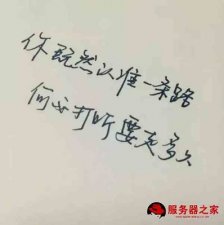 你既然认准一条路
何必打听要走多久
服务器之家